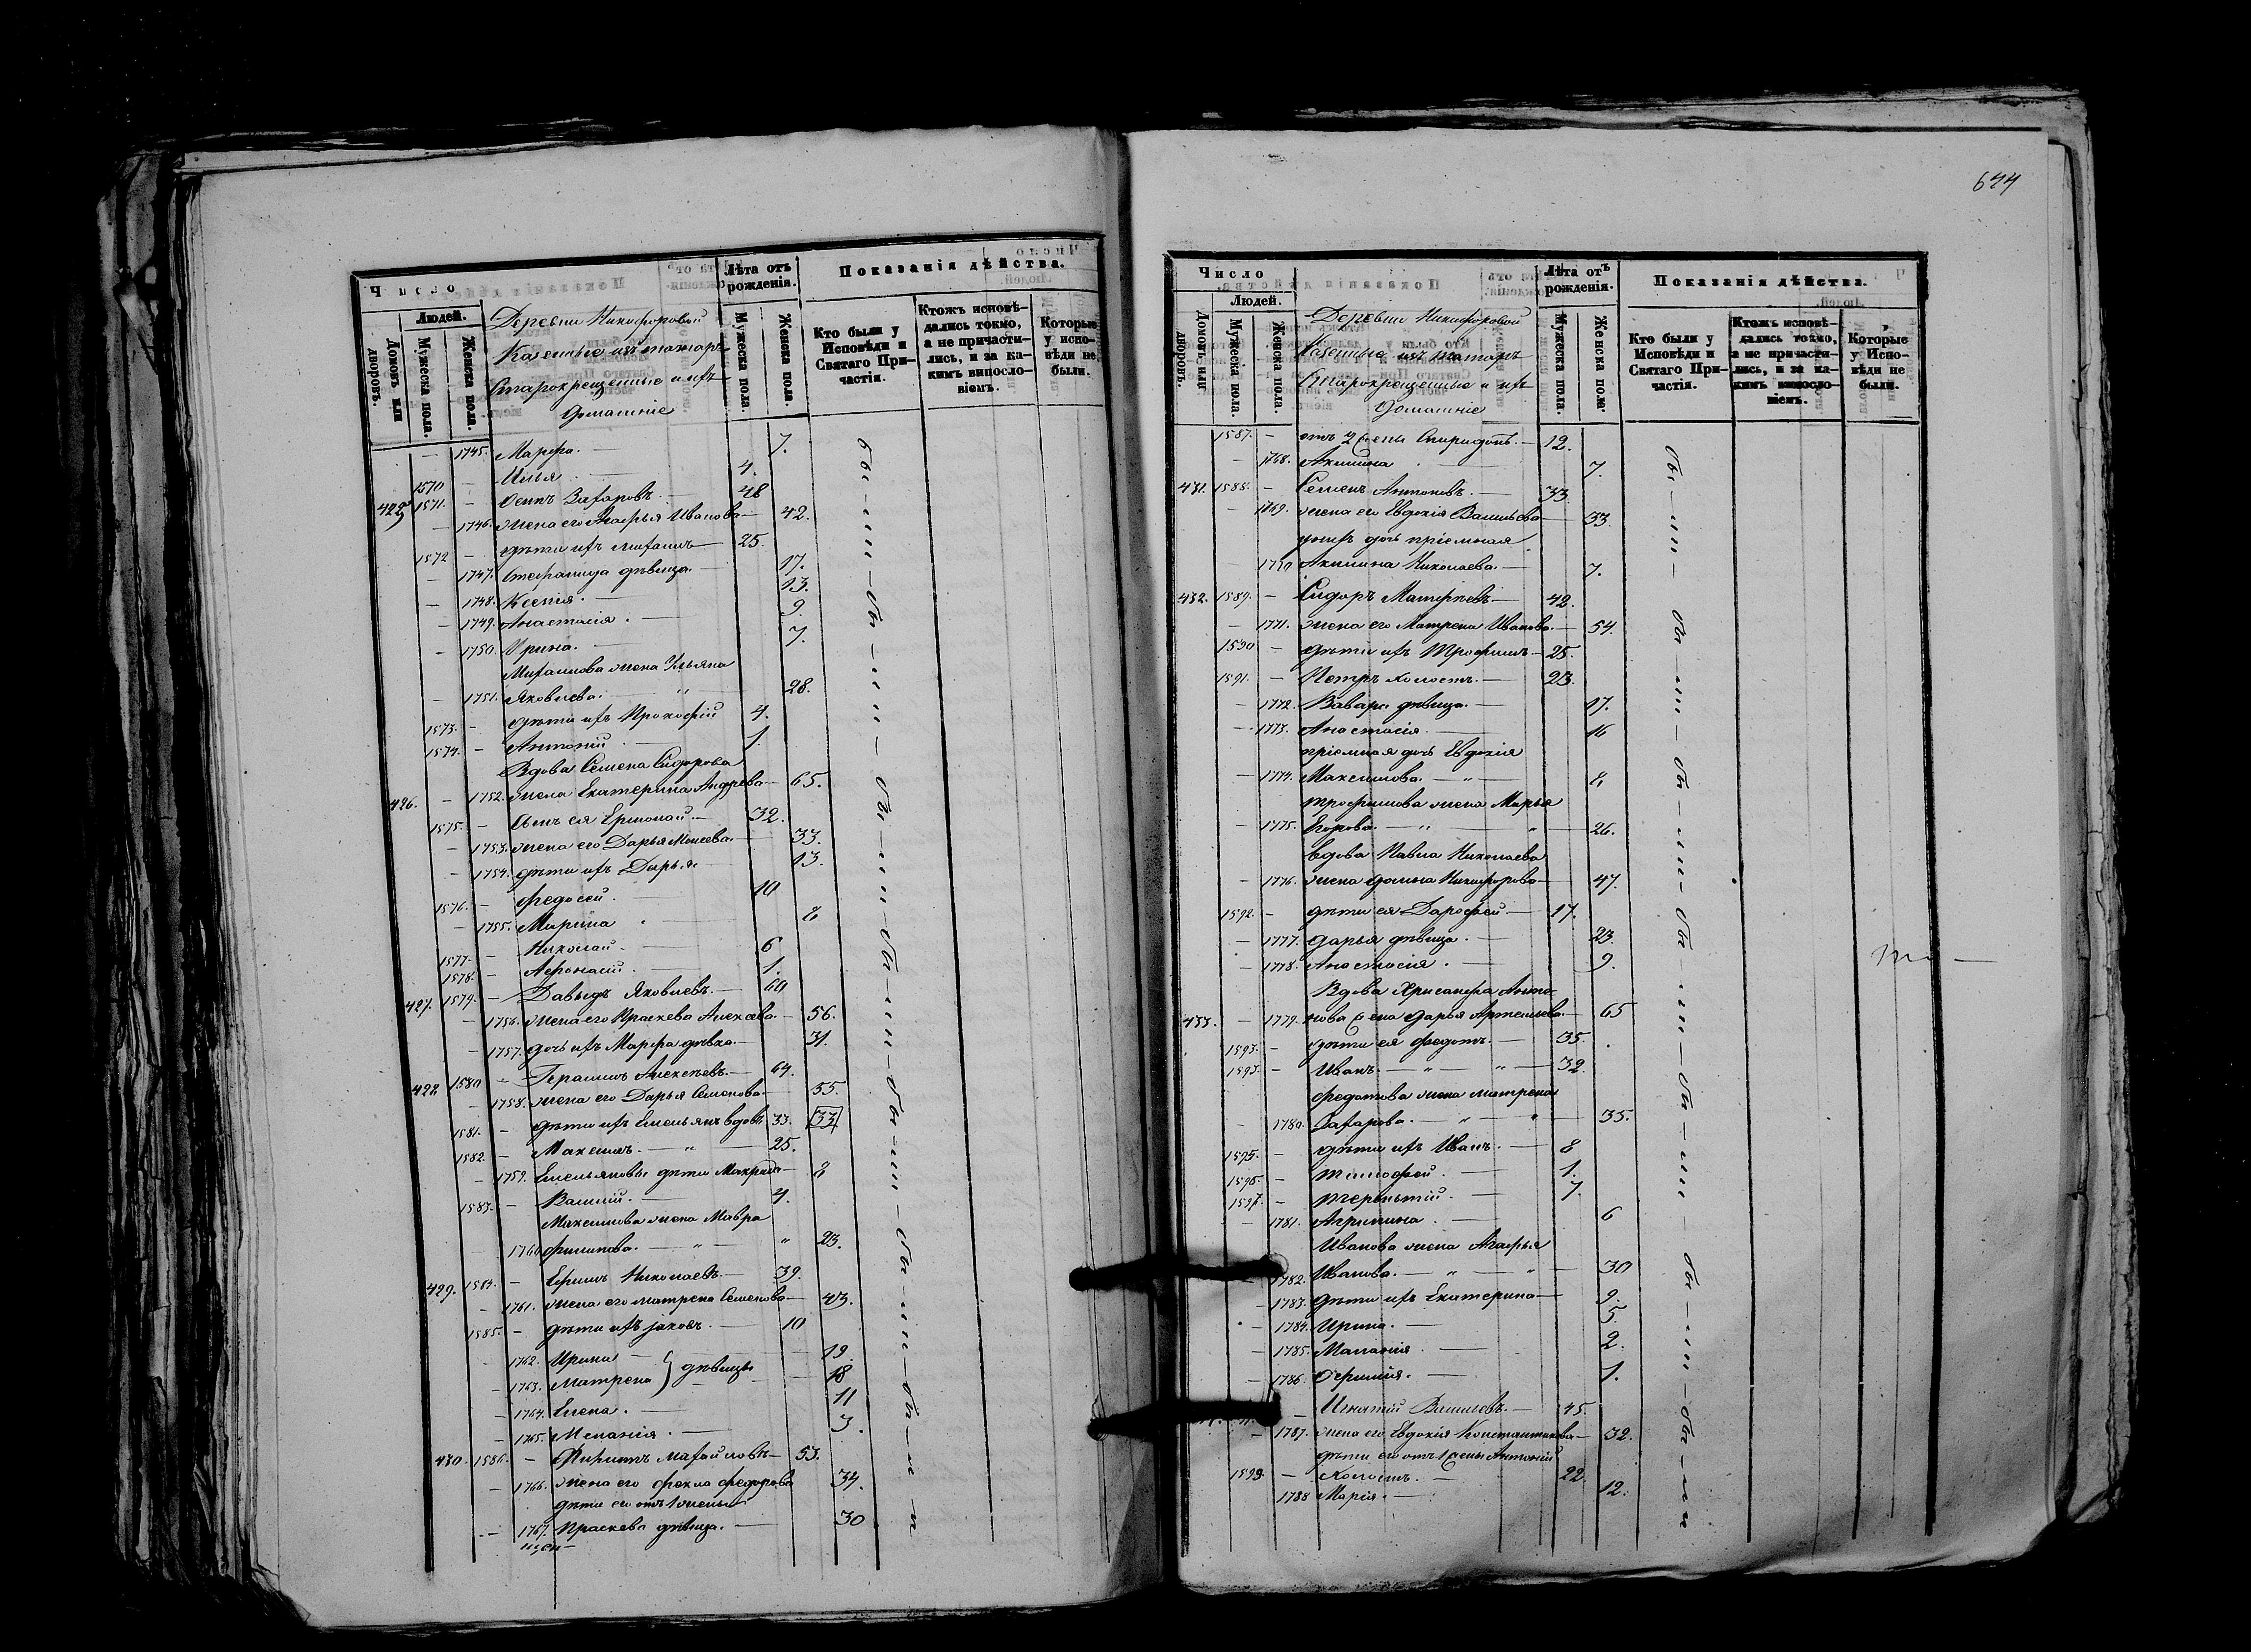 Число
Людей.
Домовъ или дворовъ.
Мужеска пола.
Женска пола.
Деревни Никифоровой
Казенные изъ татаръ
Старокрещенные и ихъ
домашніе
Лѣта отъ рожденія.
Мужеска пола.
Женска пола.
Показанія дѣйства.
Кто были у Исповѣди и Святаго Причастія.
Ктожъ исповѣдались токмо, а не причастились, и за какимъ винословіемъ.
Которые у исповѣди не были.
— 1745. Марфа. — 7.
1570 — Илья — 4.
425 1571. — Захаровъ. — 48
— 1746. жена его Агафья Иванова — 42.
1572 — дѣти ихъ Михаилъ — 25.
— 1747. Стефанида дѣвица. — 17.
— 1748. Ксенія. — 13.
— 1749. Анастасія. 9.
— 1750. Ирина. — 7.
Михаилова жена Ульяна
— 1751. Яковлева. — 28.
1573. — дѣти ихъ Прокофій 4.
1574. — Антоній. — 1.
Вдова Семена Сидорова
426. — 1752. жена Екатерина Андрева — 65.
1575. — Сынъ ея Ермолай. — 32.
— 1753. жена его Дарья Моисеева. — 33.
— 1754. дѣти ихъ Дарья 13.
1576. — Федосей. — 10
— 1755. Марина 8
1577. — Николай. — 6
1578. — Афонасій. — 1.
427. 1579. — Давыдъ Яковлевъ. — 60
— 1756. жена его Праскева Алексева. — 56.
— 1757. дочь ихъ Марфа дѣвка. — 31.
428 1580 — Герасимъ Алексѣевъ. — 64.
— 1758. жена его Дарья Семенова. — 55.
1581. — дѣти ихъ Емельянъ вдовъ 33. 33
1582. — Максимъ. — " — 25.
— 1759. Емельяновы дѣти Макрида — 8
1583. — Василій. — 4.
Максимова жена Мавра
1760 Филипова. — " — " 23.
429. 1584. — Ефимъ Николаевъ. — 39.
— 1761. жена его матрена Семенова — 43.
1585. — дѣти ихъ Яковъ. — 10
— 1762. Ирина — 19
— 1763. Матрена } дѣвицы — 18
— 1764. Елена. — 11
— 1765. Меланія. — 3.
430. 1586. — Михайловъ — 53.
— 1766. жена его Фекла Федорова 34.
дѣти его отъ 1 жены
— 1767. Праскева дѣвица. — 30
бы — ли — бы — ли — бы — ли — бы — ли — бы — ли — бы — ли — бы — ли
644
Число
Людей.
Домовъ или дворовъ.
Мужеска пола.
Женска пола.
Деревни Никифоровой
Казенные изъ татаръ
Старокрещенные и ихъ
домашніе
Лѣта отъ рожденія.
Мужеска пола.
Женска пола.
Показанія дѣйства.
Кто были у Исповѣди и Святаго Причастія.
Ктожъ исповѣдались токмо, а не причастились, и за какимъ винословіемъ.
Которые у Исповѣди не были.
1587. — отъ 2 жены Спиридонъ. — 12.
— 1768. Акилина. — 7.
431. 1588. — Семенъ Антоновъ. — 33.
— 1769. жена его Евдокія Васильева — 33.
у нихъ дочь пріемная
— 1770 Акилина Николаева. — 7.
432. 1589. — Сидоръ Матфѣевъ — 42.
— 1771. жена его Матрена Иванова. — 54.
1590 — дѣти ихъ Трофимъ — 25.
1591. — Петръ холостъ. — 23.
— 1772. Вавара дѣвица. — 17.
— 1773. Анастасія. — 16
пріемная дочь Евдокія
— 1774. Максимова. — " — 8
трофимова жена Марья
— 1775. Егорова. — " — " — 26.
вдова Павла Николаева
— 1776. жена Никифорова — 47.
1592. — дѣти ея Дарофей — 17.
— 1777. дарья дѣвица. — 23.
— 1778. Анастасія. — 9.
Вдова Хрисанфа Анто-
433. — 1779. нова жена дарья Артемьева. — 65
1593. — дѣти ея Федотъ. — 35.
1594. — Иванъ. — " — " — 32.
федотова жена матрена
— 1780. Захарова. — " — " — 35.
1595. — дѣти ихъ Иванъ. — 8
1596. — Тимофей. — 1.
1597. — терентій. — 7.
— 1781. Агрипина. — 6
Иванова жена Агафья
— 1782. Иванова. — " — " — 30
— 1783. дѣти ихъ Екатерина — 9.
— 1784. Ирина. — 5.
— 1785. Маланія. — 2.
— 1786. Офимія. — 1.
— Игнатій Васильевъ. — 45.
— 1787. жена его Евдокія Константинова — 32.
дѣти его отъ 1 жены Антоній
1599. — Холостъ. — 22.
1788 Марія. — 12.
бы — ли — бы — ли — бы — ли — бы — ли — бы — ли — бы — ли — бы — ли